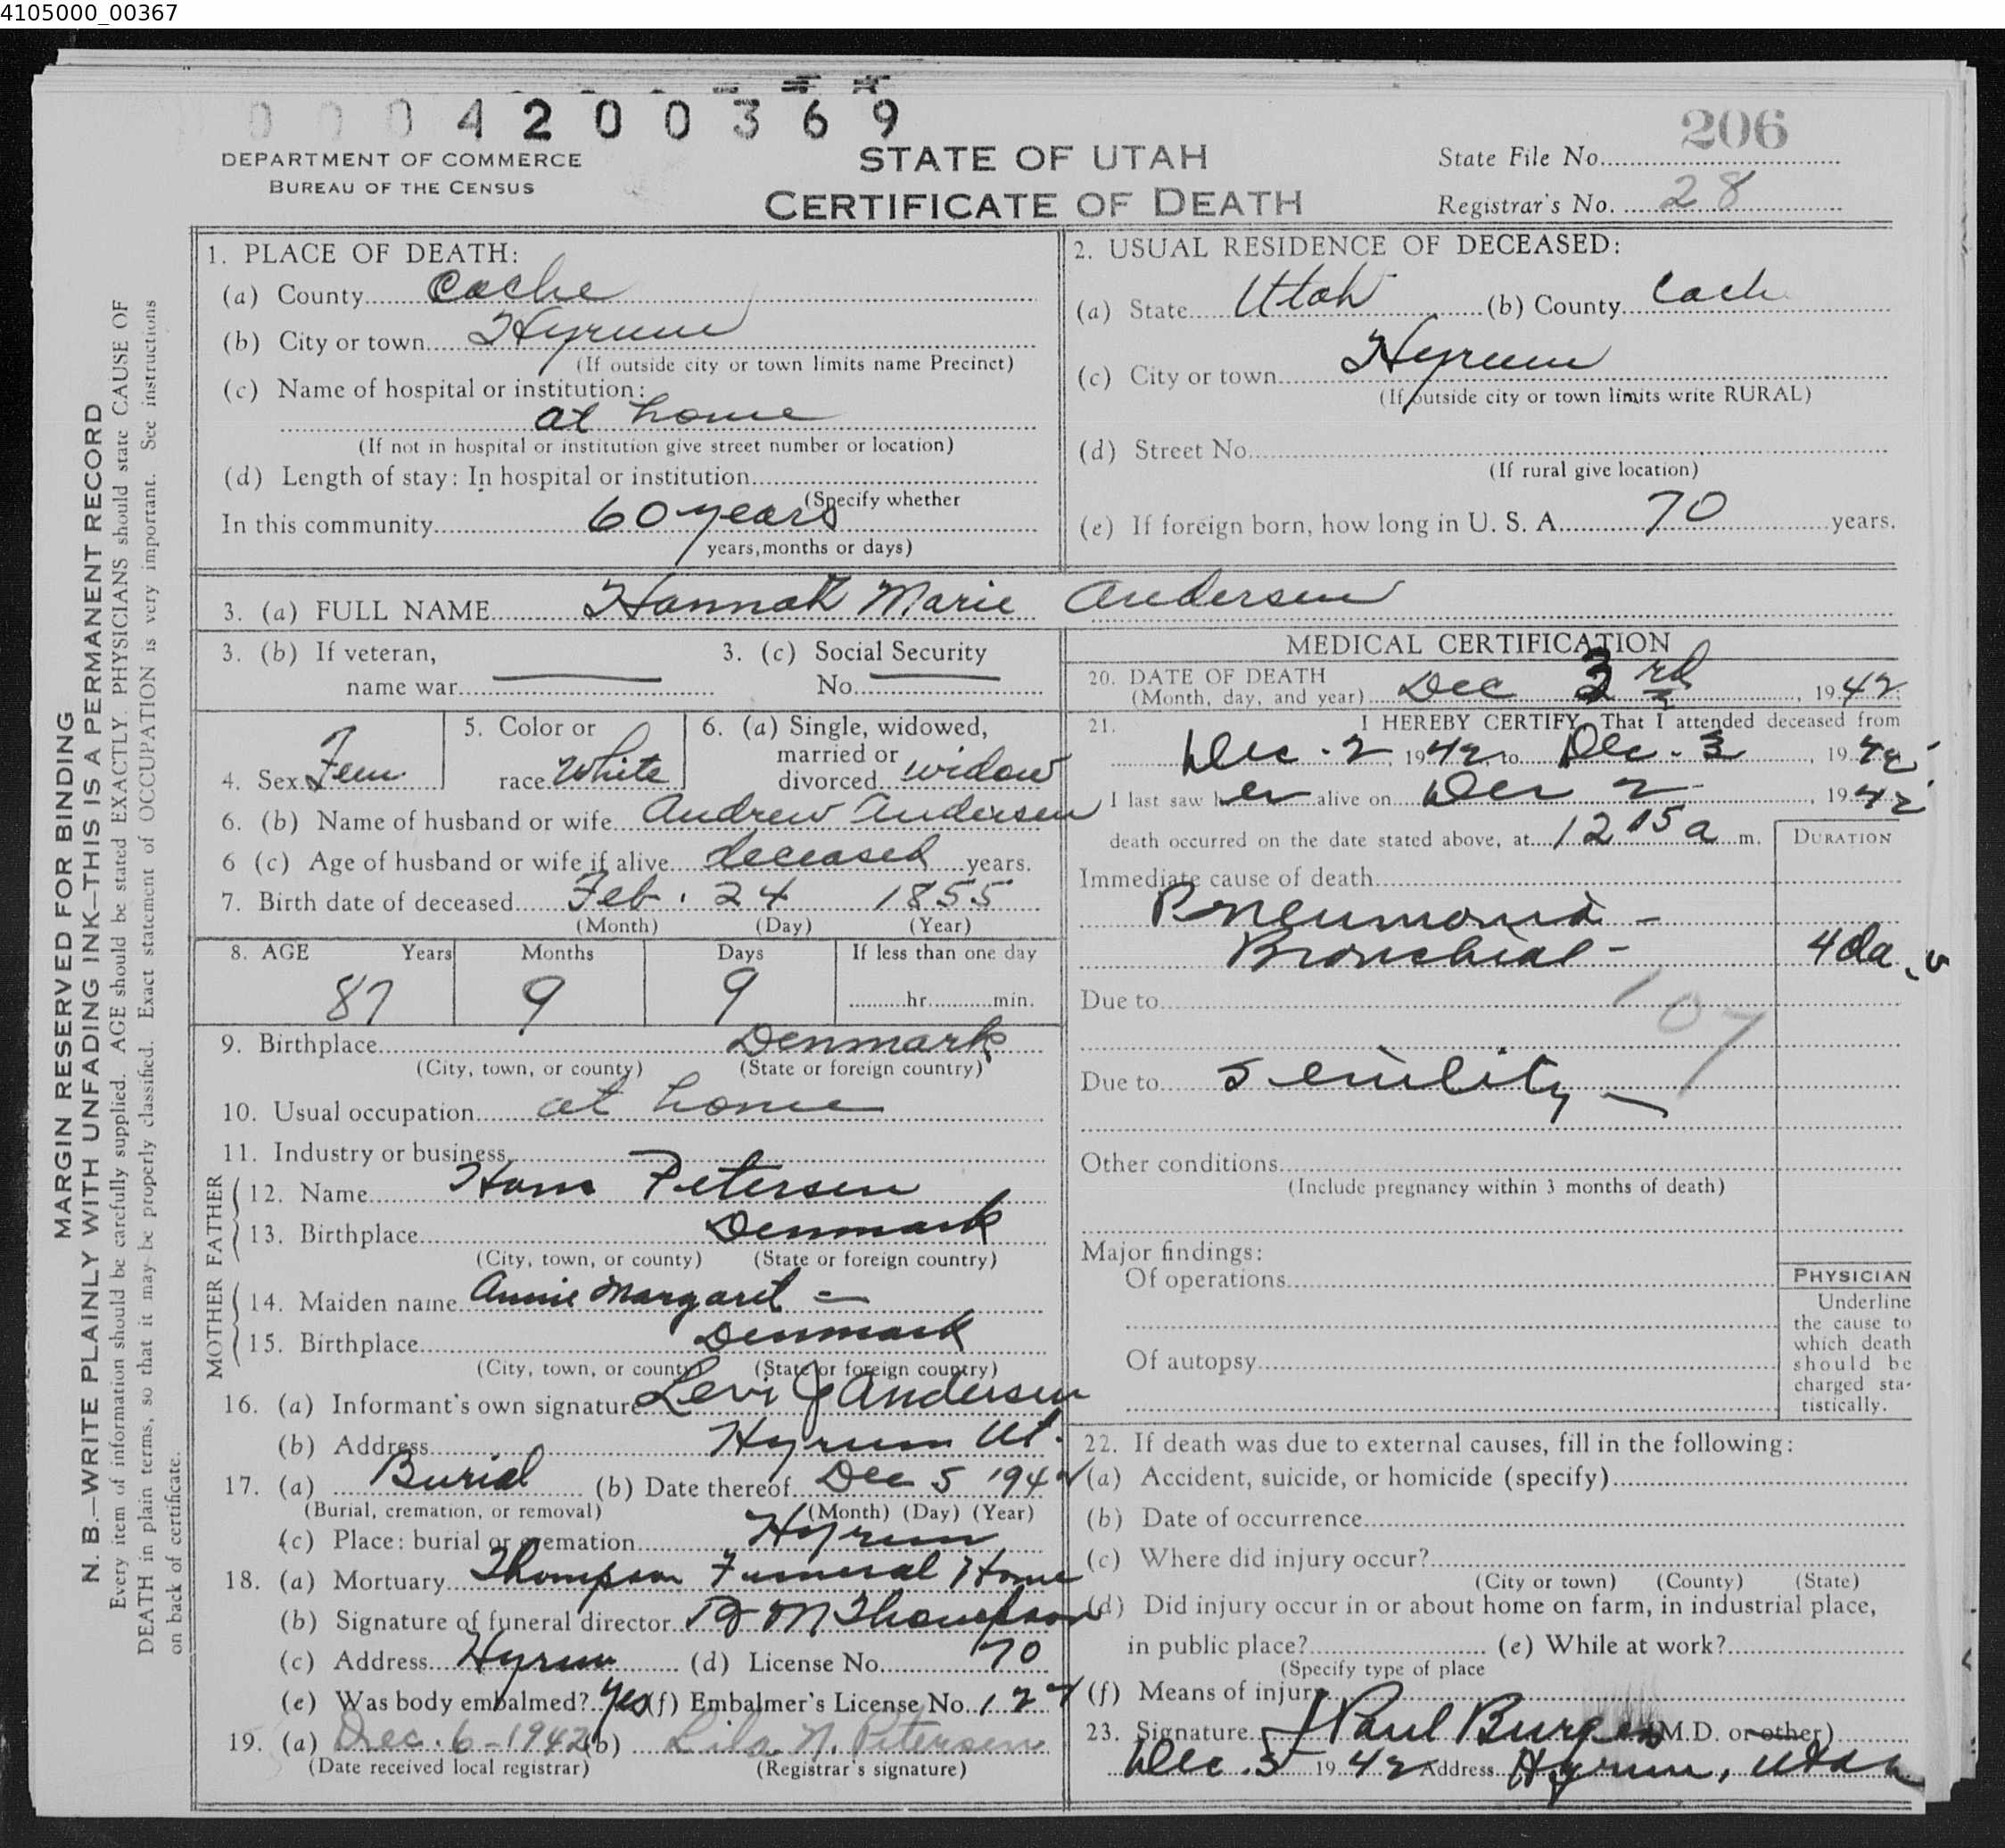 4105000_00367
0004200369
206
DEPARTMENT OF COMMERCE
BUREAU OF THE CENSUS
STATE OF UTAH
CERTIFICATE OF DEATH
State File No.
Registrar's No. 28
MARGIN RESERVED FOR BINDING
N. B.—WRITE PLAINLY WITH UNFADING INK—THIS IS A PERMANENT RECORD
Every item of information should be carefully supplied. AGE should be stated EXACTLY. PHYSICIANS should state CAUSE OF
DEATH in plain terms, so that it may be properly classified. Exact statement of OCCUPATION is very important. See instructions
on back of certificate.
1. PLACE OF DEATH:
(a) County Cache
(b) City or town Hyrum
(If outside city or town limits name Precinct)
(c) Name of hospital or institution:
at home
(If not in hospital or institution give street number or location)
(d) Length of stay: In hospital or institution
(Specify whether
In this community 60 years
years, months or days)
2. USUAL RESIDENCE OF DECEASED:
(a) State Utah (b) County Cache
(c) City or town Hyrum
(If outside city or town limits write RURAL)
(d) Street No.
(If rural give location)
(e) If foreign born, how long in U. S. A. 70 years.
3. (a) FULL NAME Hannah Marie Andersen
3. (b) If veteran,
name war
3. (c) Social Security
No.
4. Sex Fem
5. Color or
race White
6. (a) Single, widowed,
married or
divorced widow
6. (b) Name of husband or wife Andrew Andersen
6 (c) Age of husband or wife if alive deceased years.
7. Birth date of deceased Feb. 24 1855
(Month) (Day) (Year)
8. AGE Years Months Days If less than one day
87 9 9 hr. min.
9. Birthplace Denmark
(City, town, or county) (State or foreign country)
10. Usual occupation at home
11. Industry or business
FATHER
12. Name Hans Petersen
13. Birthplace Denmark
(City, town, or county) (State or foreign country)
MOTHER
14. Maiden name Annie Margaret —
15. Birthplace Denmark
(City, town, or county) (State or foreign country)
16. (a) Informant's own signature Levi J Andersen
(b) Address Hyrum Ut.
17. (a) Burial (b) Date thereof Dec 5 1942
(Burial, cremation, or removal) (Month) (Day) (Year)
(c) Place: burial or cremation Hyrum
18. (a) Mortuary Thompson Funeral Home
(b) Signature of funeral director M Thompson
(c) Address Hyrum (d) License No. 70
(e) Was body embalmed? Yes (f) Embalmer's License No. 127
19. (a) Dec. 6-1942 (b) Lila N. Petersen
(Date received local registrar) (Registrar's signature)
MEDICAL CERTIFICATION
20. DATE OF DEATH
(Month, day, and year) Dec 3rd, 1942
21. I HEREBY CERTIFY, That I attended deceased from
Dec. 2, 1942 to Dec. 3, 1942
I last saw her alive on Dec 2, 1942
death occurred on the date stated above, at 12 15 a m.
DURATION
Immediate cause of death
Pneumonia -
Bronchial - 4 da.
Due to
107
Due to Senility
Other conditions
(Include pregnancy within 3 months of death)
Major findings:
Of operations
Of autopsy
PHYSICIAN
Underline
the cause to
which death
should be
charged sta-
tistically.
22. If death was due to external causes, fill in the following:
(a) Accident, suicide, or homicide (specify)
(b) Date of occurrence
(c) Where did injury occur?
(City or town) (County) (State)
(d) Did injury occur in or about home on farm, in industrial place,
in public place? (e) While at work?
(Specify type of place
(f) Means of injury
23. Signature J Paul Burgess (M.D. or other)
Dec. 5 1942 Address Hyrum, Utah